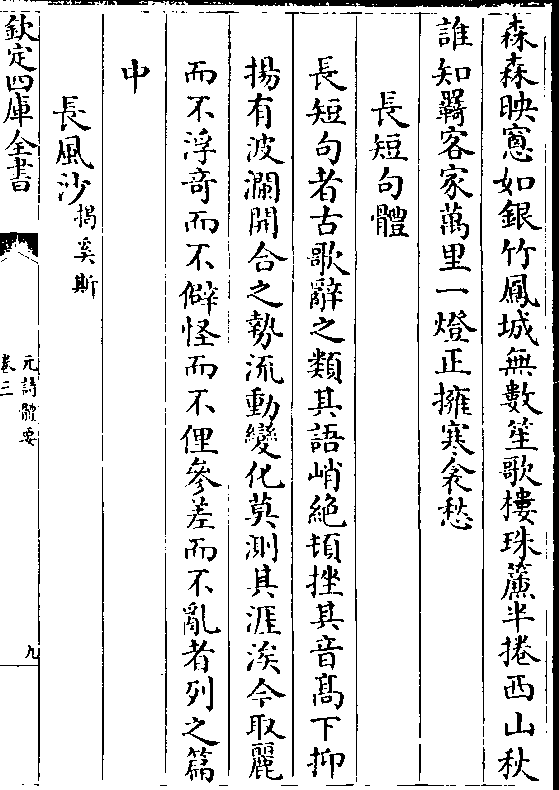 森森映窻如銀竹鳳城無數笙歌樓珠簾半捲西山秋
誰知羇客家萬里一燈正擁寒衾愁
長短句體
長短句者古歌辭之類其語峭絶頓挫其音髙下抑
揚有波瀾開合之勢流動變化莫測其涯涘今取麗
而不浮奇而不僻怪而不俚參差而不亂者列之篇
中
長風沙揭奚斯
欽定四庫全書
元詩體要
卷三
九